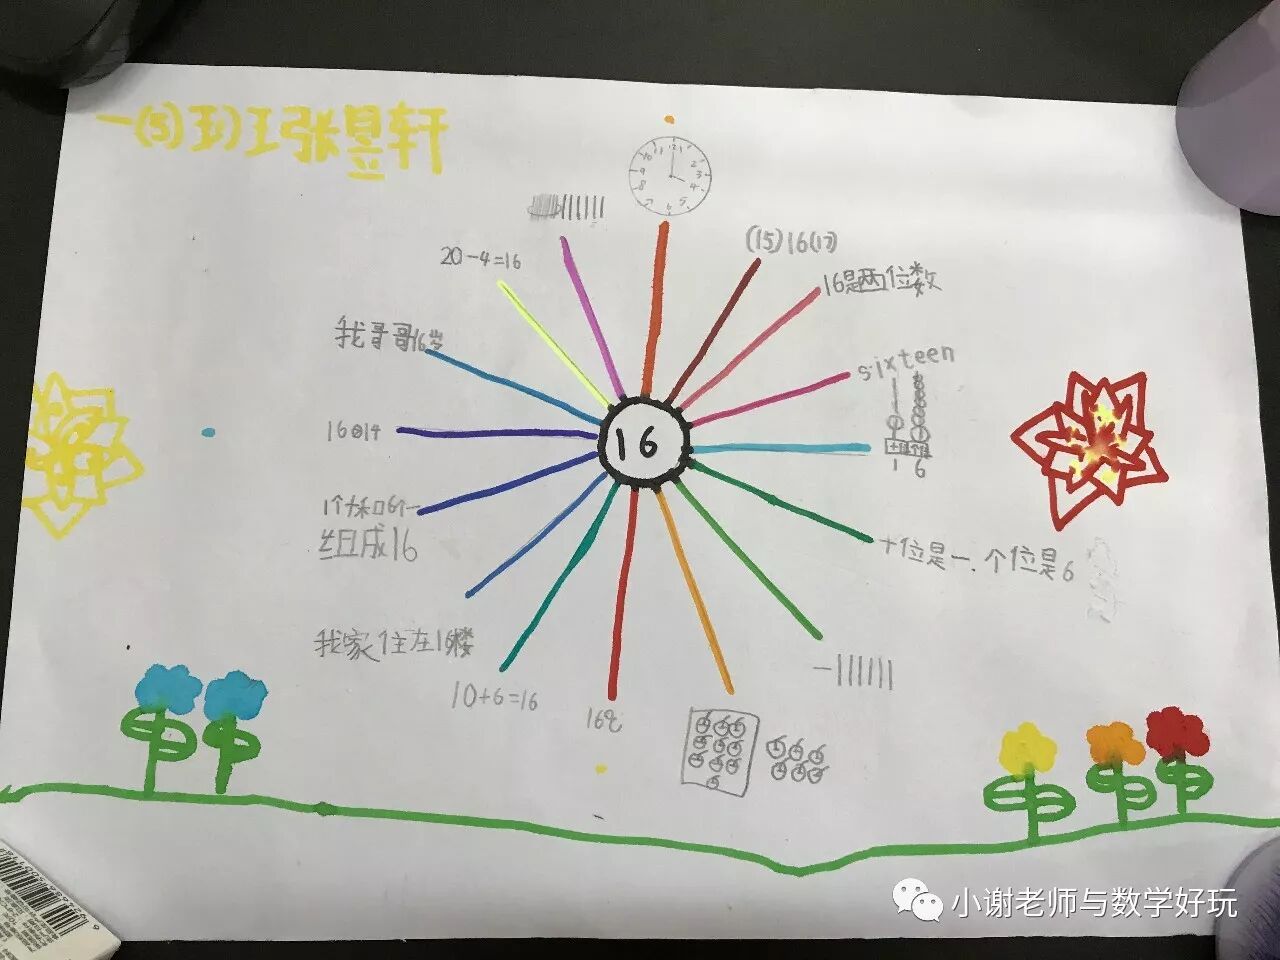 一(5)班张昱轩
12 1 2 3 4 5 6 7 8 9 10 11
20-4=16
(15)16(17)
16是两位数
我哥哥16岁
sixteen
16 14
十位 个位
1 6
1个十和6个一
组成16
十位是一、个位是6
我家住在16楼
10+6=16
小谢老师与数学好玩